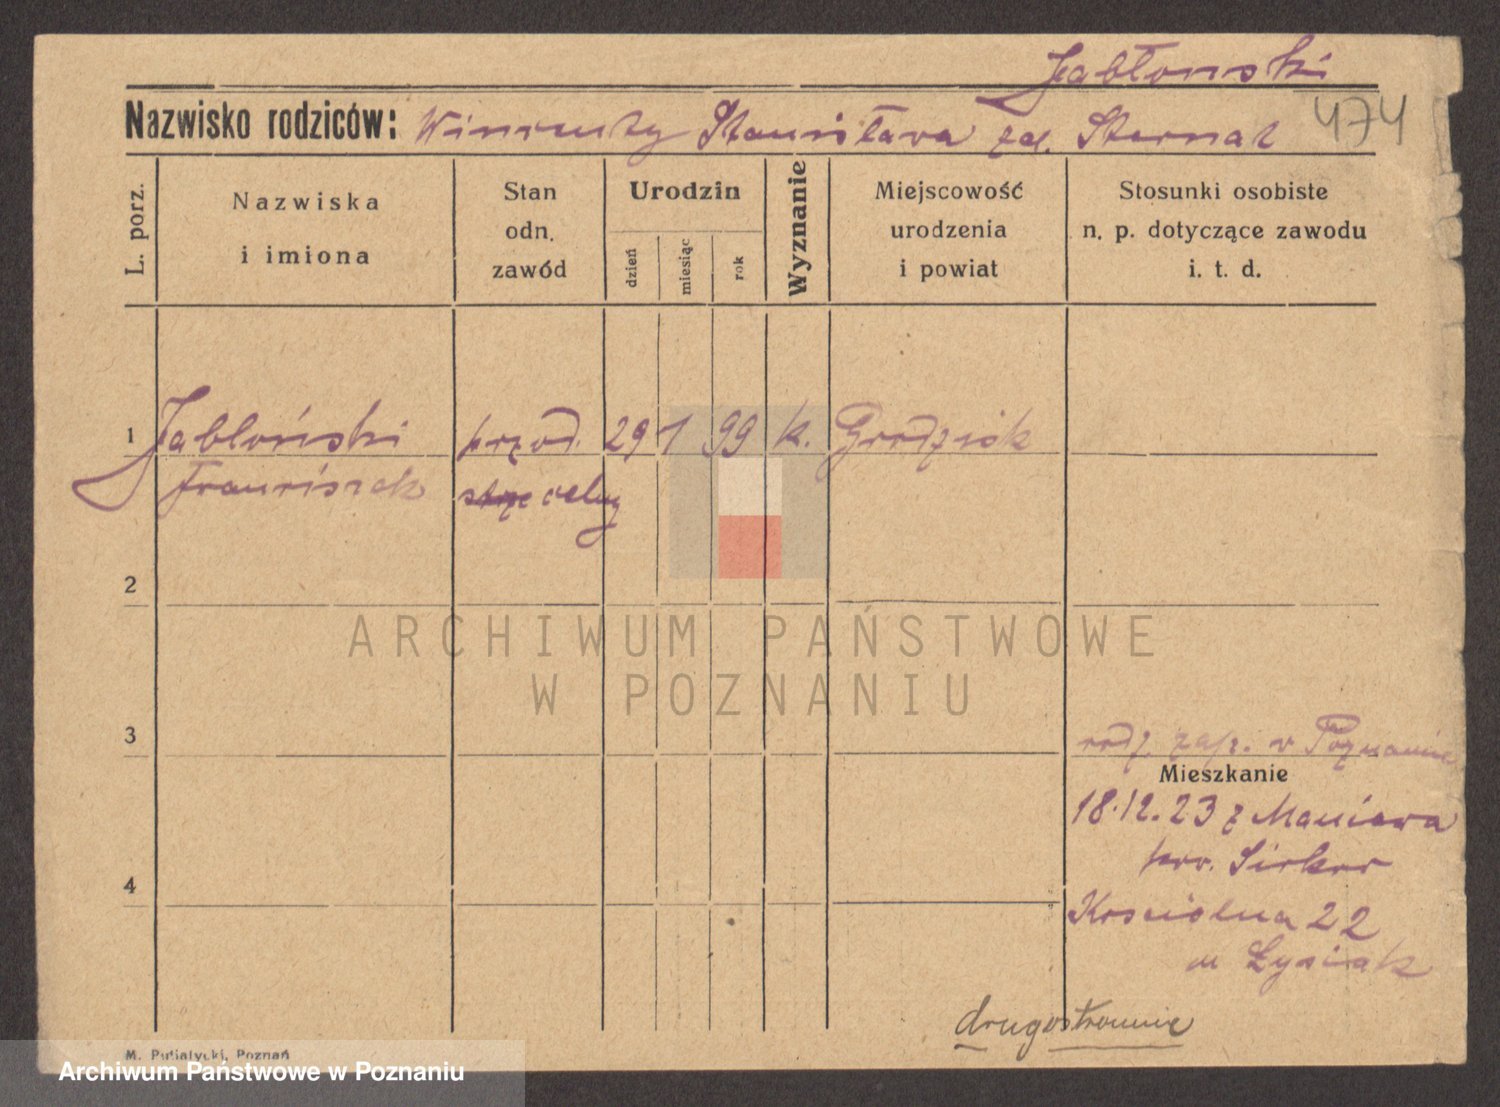 Jabłonski
Nazwisko rodziców: Wincenty Stanisława zd. Sternal 474
L. porz.
Nazwiska
i imiona
Stan
odn.
zawód
Urodzin
dzień
miesiąc
rok
Wyznanie
Miejscowość
urodzenia
i powiat
Stosunki osobiste
n. p. dotyczące zawodu
i. t. d.
1 Jabłoński przod. 29 1 99 k. Grodzisk
Franciszek celny
2
ARCHIWUM PAŃSTWOWE
W POZNANIU
3
rodz. zap. w Poznaniu
Mieszkanie
18.12.23 z
pow.
4
Kościelna 22
u Łysiak
drugostronnie
M. Putiatycki, Poznań
Archiwum Państwowe w Poznaniu